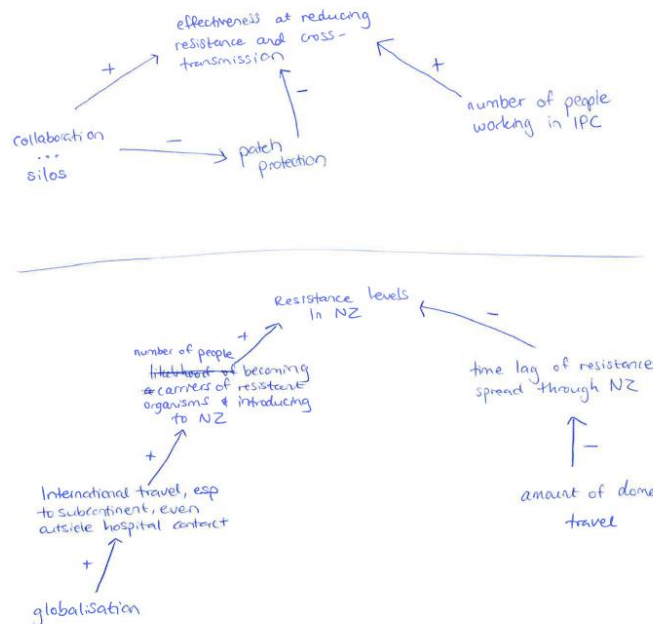 effectiveness at reducing
resistance and cross-
transmission
+
+
-
number of people
working in IPC
collaboration
...
silos
-
patch
protection
Resistance levels
In NZ
+
-
number of people
likelihood of becoming
carriers of resistant
organisms & introducing
to NZ
time lag of resistance
spread through NZ
+
-
International travel, esp
to subcontinent, even
outside hospital contact
amount of dome
travel
+
globalisation